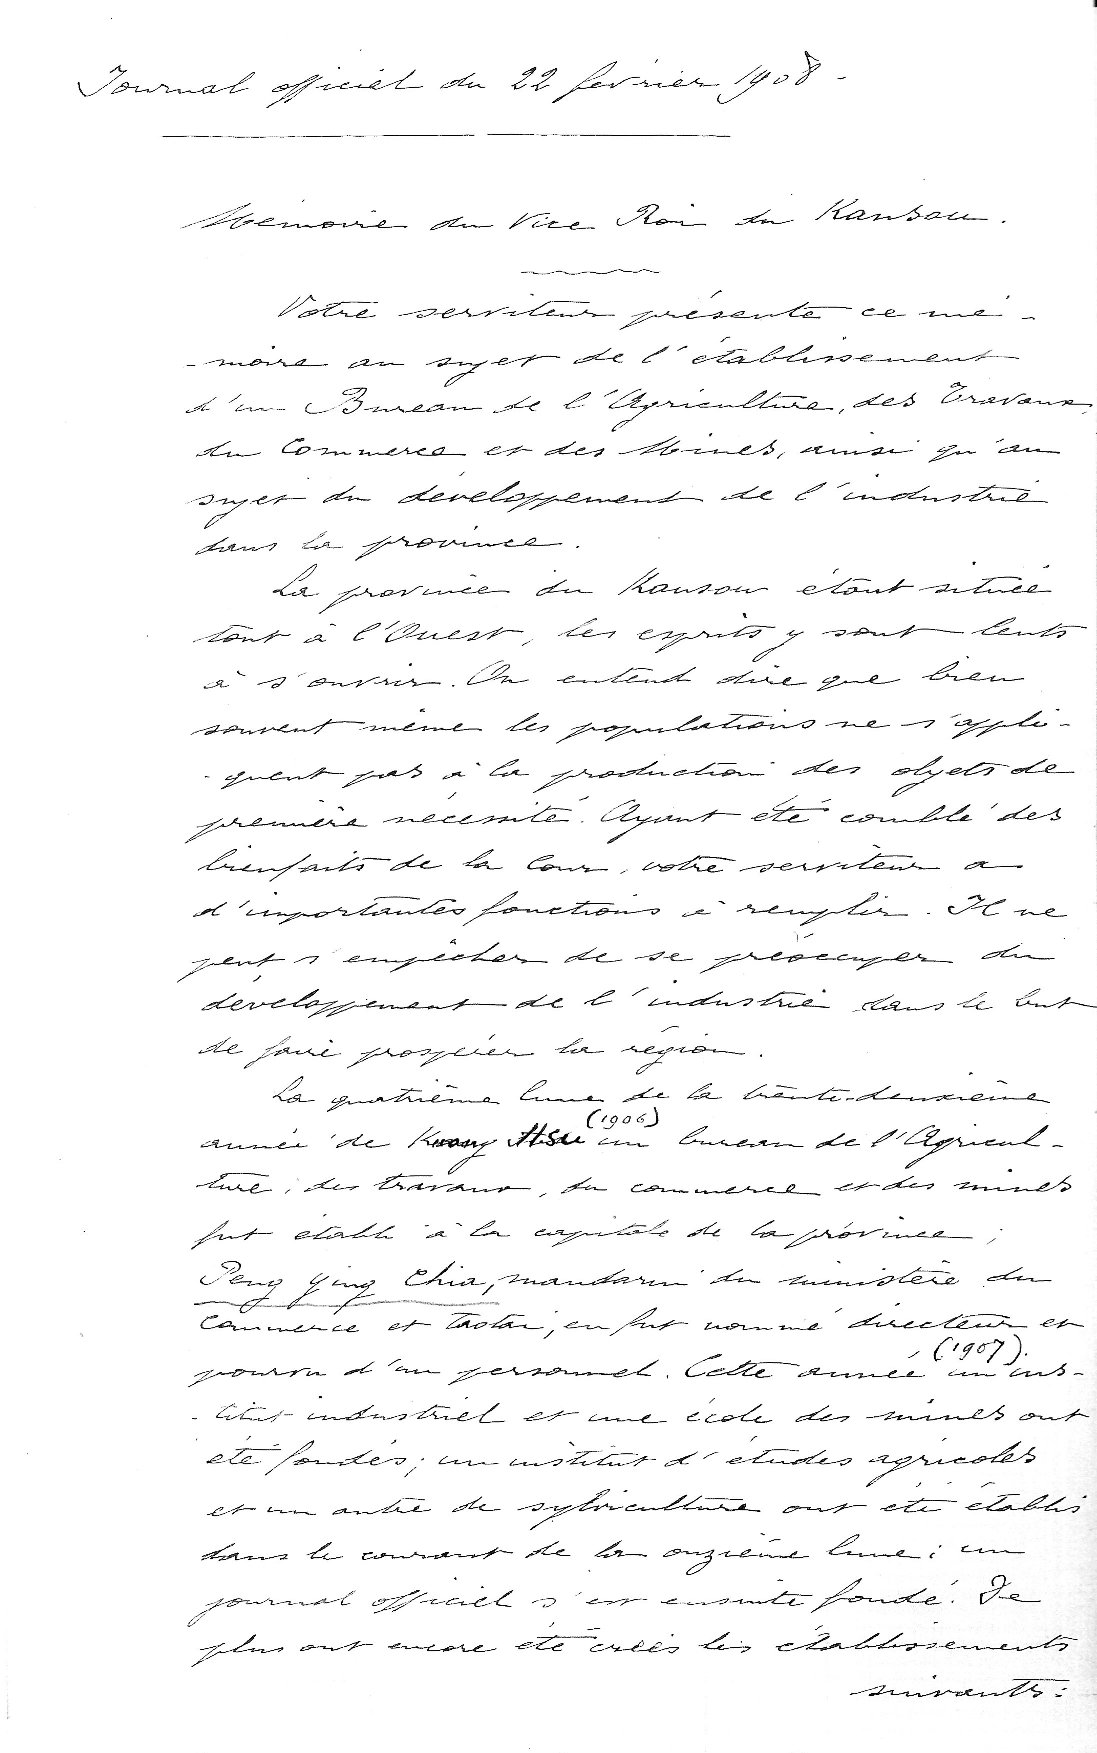 Journal officiel du 22 février 1908 -
Mémoire du Vice Roi du Kansou.
Votre serviteur présente ce mé -
- moire au sujet de l'établissement
d'un Bureau de l'Agriculture, des Travaux,
du Commerce et des Mines, ainsi qu'au
sujet du développement de l'industrie
dans la province.
La province du Kansou étant située
tout à l'Ouest, les esprits y sont lents
à s'ouvrir. On entend dire que bien
souvent même les populations ne s'appli-
- quent pas à la production des objets de
première nécessité. Ayant été comblé des
bienfaits de la Cour, votre serviteur a
d'importantes fonctions à remplir. Il ne
peut s'empêcher de se préoccuper du
développement de l'industrie dans le but
de faire prospérer la région.
La quatrième lune de la trente-deuxième
(1906)
année de Koang Hsu un bureau de l'Agricul -
ture, des travaux, du commerce et des mines
fut établi à la capitale de la province ;
Peng Ying Chia, mandarin du ministère du
Commerce et taotai, en fut nommé directeur et
(1907).
pourvu d'un personnel. Cette année un ins-
- titut industriel et une école des mines ont
été fondés ; un institut d'études agricoles
et un autre de sylviculture ont été établis
dans le courant de la onzième lune ; un
journal officiel s'est ensuite fondé. De
plus ont encore été créés les établissements
suivants :